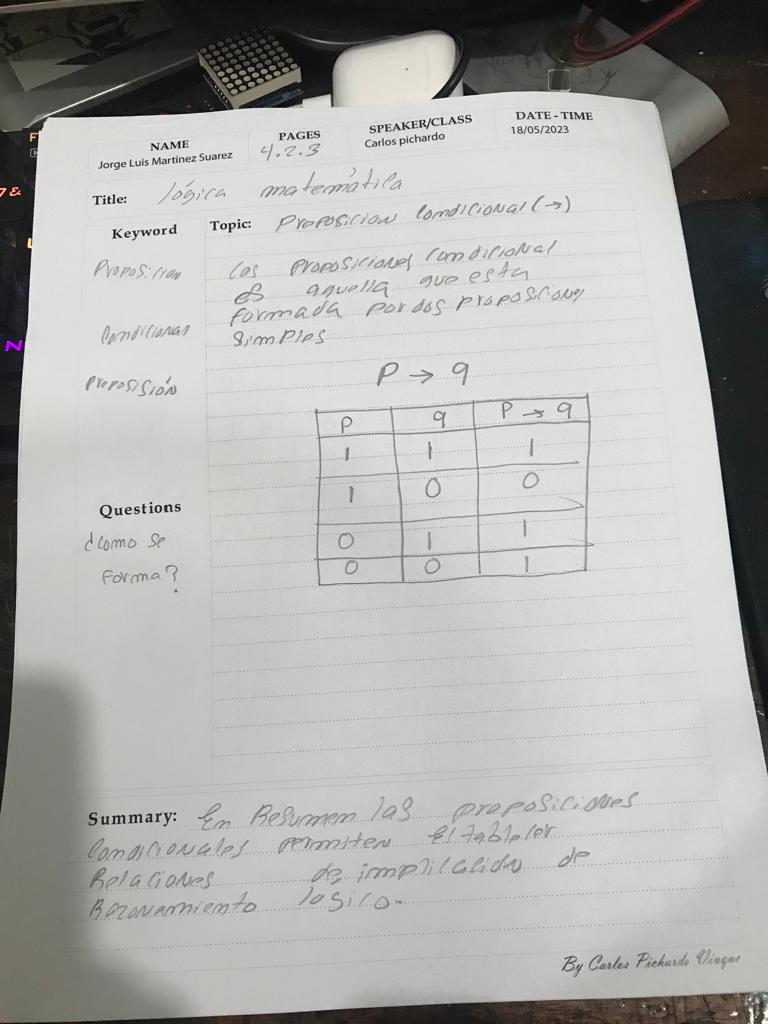 NAME
Jorge Luis Martinez Suarez
PAGES
4.2.3
SPEAKER/CLASS
Carlos pichardo
DATE - TIME
18/05/2023
Title: lógica matemática
Keyword
Proposicion
Condicional
Proposisión
Topic: Proposicion Condicional (→)
Las proposiciones Condicional
es aquella que esta
formada por dos proposiciones
simples
P → q
P q P → q
1 1 1
1 0 0
0 1 1
0 0 1
Questions
¿Como se
forma?
Summary: En Resumen las proposiciones
Condicionales permiten Establecer
Relaciones de implicación de
Razonamiento logico.
By Carlos Pichardo Viuque